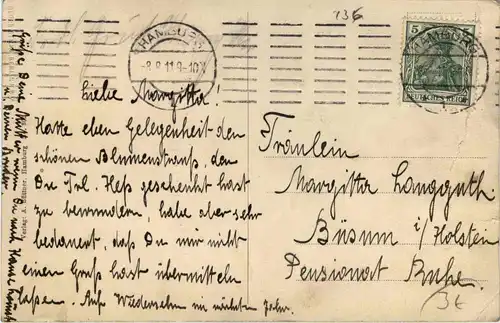 136
HAMBURG
-8.8.11. 9-10 V
5
DEUTSCHES REICH
HAMBURG
Liebe Margitta!
Hatte eben Gelegenheit den
schönen Blumenstrauß, den
Du Frl. Heß geschenkt hast
zu bewundern, habe aber sehr
bedauert, daß Du mir nicht
einen Gruß hast übermitteln
lassen. Auf Wiedersehn im nächsten Jahr.
Grüße Deine Mutter, wenn Du nach Hause kommst
u. Deinen Bruder.
Hamburg
Fräulein
Margitta Langguth
Büsum i/Holsten
Pensionat Ruhe.